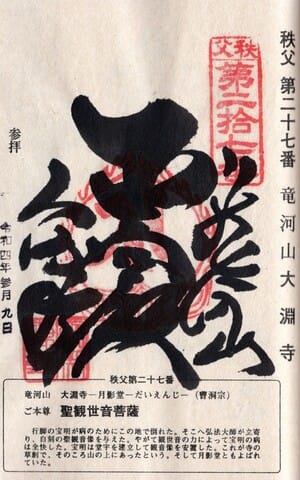 秩父 第二十七番 竜河山大淵寺
秩父
第二十七番
参拝
令和四年参月九日
秩父第二十七番
竜河山 大淵寺ー月影堂ーだいえんじー（曹洞宗）
ご本尊 聖観世音菩薩
行脚の宝明が病のためにこの地で倒れた。そこへ弘法大師が立寄
り、自刻の聖観音像を与えた。やがて観世音の力によって宝明の病
は全快した。宝明は堂宇を建立して観音像を安置した。これが寺の
草創で、そのころ山の上にあったという。そして月影堂ともよばれ
ていた。